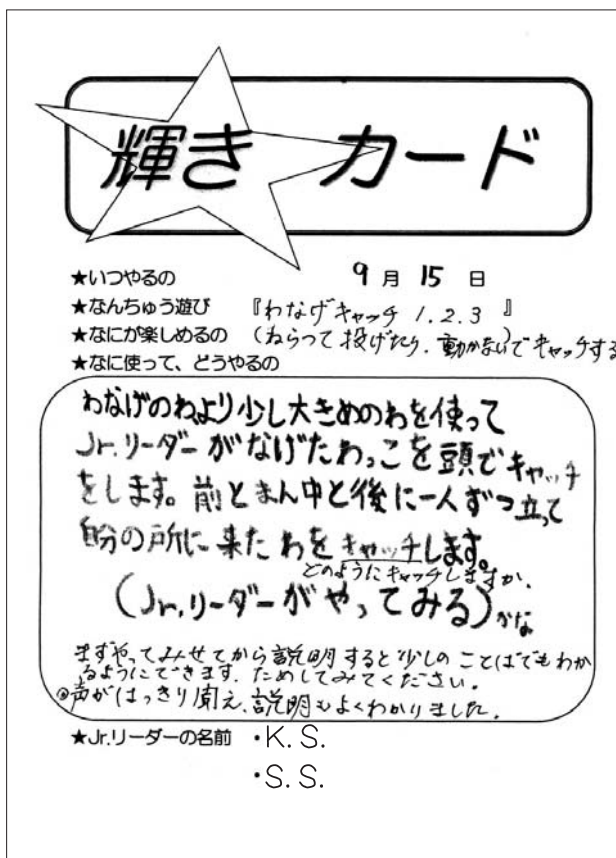 輝き カード
★いつやるの 9月15日
★なんちゅう遊び 『わなげキャッチ 1.2.3 』
★なにが楽しめるの (ねらって投げたり、動かないでキャッチする
★なに使って、どうやるの
わなげのわより少し大きめのわを使って
Jr.リーダーがなげたわっこを頭でキャッチ
をします。前とまん中と後に一人ずつ立って
自分の所に来たわをキャッチします。
どのようにキャッチしますか、
(Jr.リーダーがやってみる)かな
まずやってみせてから説明すると少しのことばでもわか
るようにできます。ためしてみてください。
◎声がはっきり聞え、説明もよくわかりました。
★Jr.リーダーの名前 ・K.S.
・S.S.